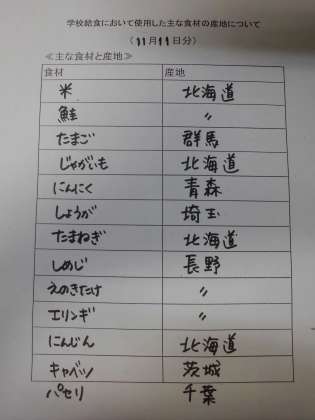 学校給食において使用した主な食材の産地について
(11月11日分)
≪主な食材と産地≫
食材 産地
米 北海道
鮭 〃
たまご 群馬
じゃがいも 北海道
にんにく 青森
しょうが 埼玉
たまねぎ 北海道
しめじ 長野
えのきたけ 〃
エリンギ 〃
にんじん 北海道
キャベツ 茨城
パセリ 千葉